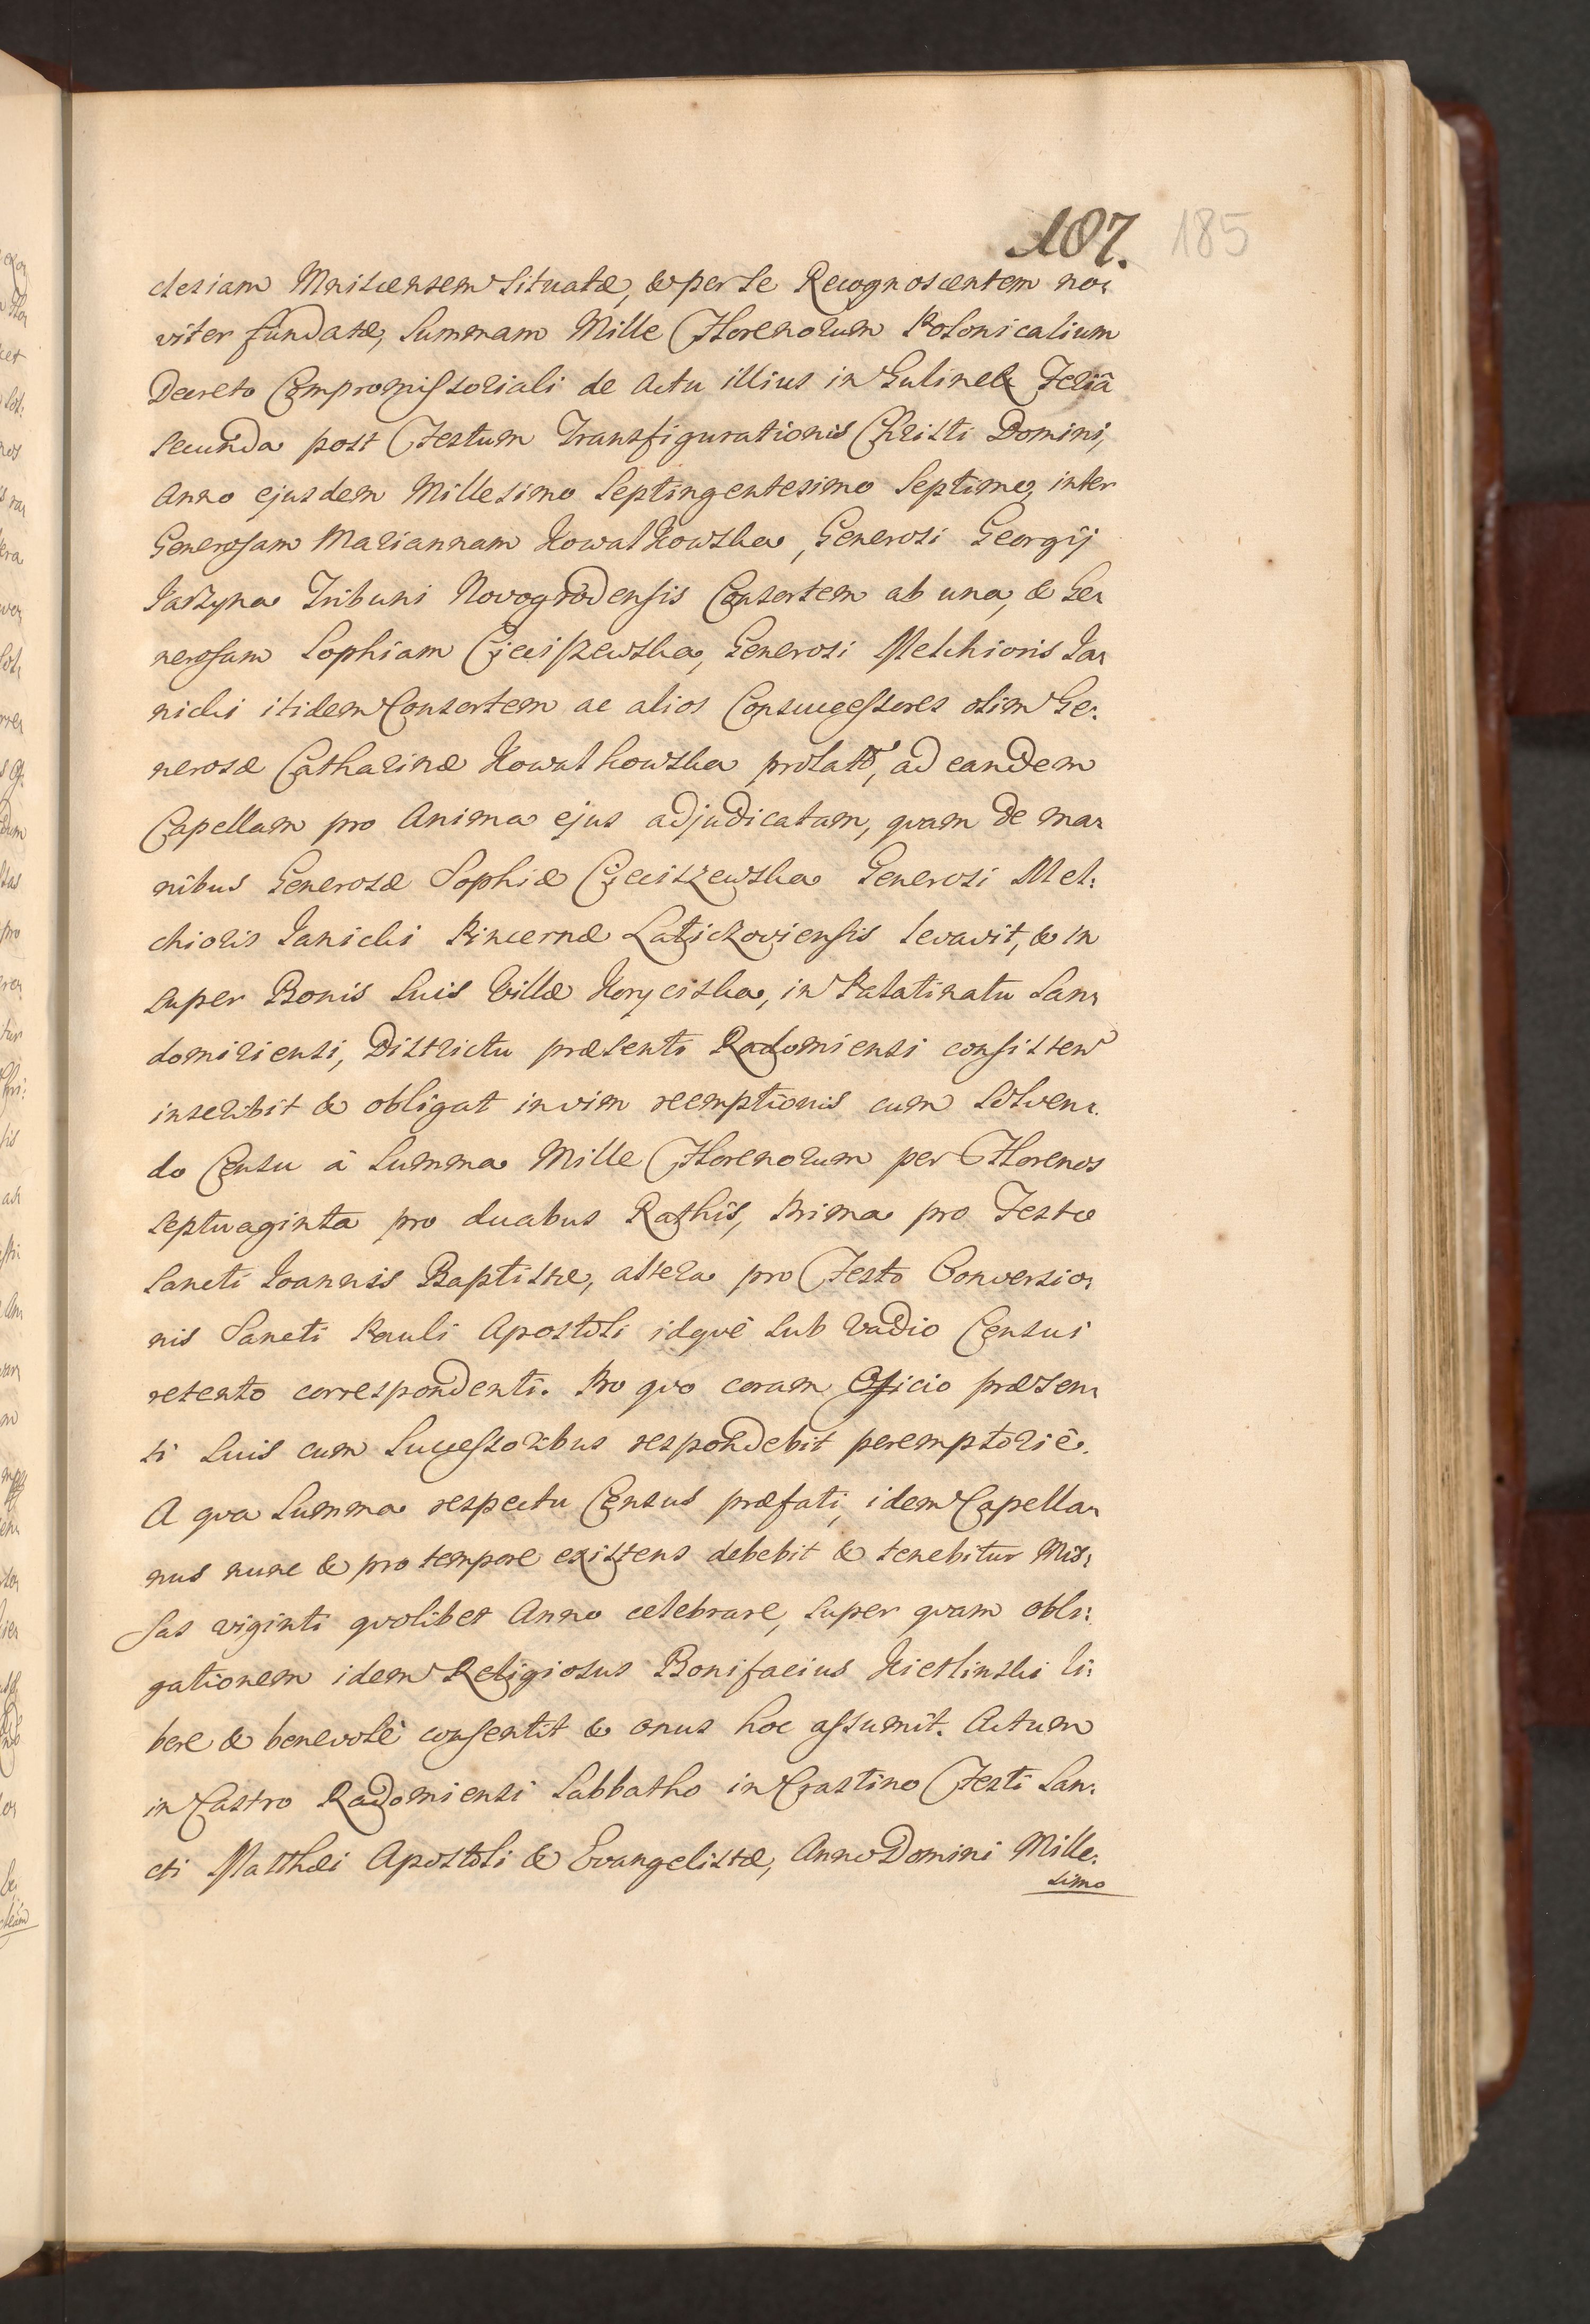 187. 185
clesiam Mniscensem situatæ, & per se Recognoscentem no:
viter fundatæ, Summam Mille Florenorum Polonicalium
Decreto Compromissoriali de Actu illius in Gulinek Feriâ
secunda post Festum Transfigurationis Christi Domini,
Anno ejusdem Millesimo Septingentesimo Septimo, inter
Generosam Mariannam Kowalkowska, Generosi Georgij
Jarzyna Tribuni Novogrodensis Consortem ab una, & Ge:
nerosam Sophiam Cieciszewska, Generosi Melchioris Ja:
nicki itidem Consortem ac alios Consuccessores olim Ge:
nerosæ Catharinæ Kowalkowska prolato, ad eandem
Capellam pro Anima ejus adjudicatam, quam de ma:
nibus Generosæ Sophiæ Cieciszewska Generosi Mel:
chioris Janicki Pincernæ Laticzoviensis levavit, & in
super Bonis suis Villæ Koryciska, in Palatinatu San:
domiriensi, Districtu præsenti Radomiensi consisten
inscribit & obligat in vim reemptionis cum solven:
do Censu â Summa Mille Florenorum per Florenos
septuaginta pro duabus Rathis, Prima pro Festo
Sancti Joannis Baptistæ, altera pro Festo Conversio:
nis Sancti Pauli Apostoli idquè sub Vadio Censui
retento correspondenti. Pro quo coram Officio præsen:
ti suis cum Successoribus respondebit peremptoriè.
A qua Summa respectu Census præfati, idem Capella:
nus nunc & pro tempore existens debebit & tenebitur Mis:
sas viginti quolibet Anno celebrare, super quam obli:
gationem idem Religiosus Bonifacius Kietlinski li:
bere & benevolè consentit & onus hoc assumit. Actum
in Castro Radomiensi Sabbatho in Crastino Festi San:
cti Matthæi Apostoli & Evangelistæ, Anno Domini Mille:
simo